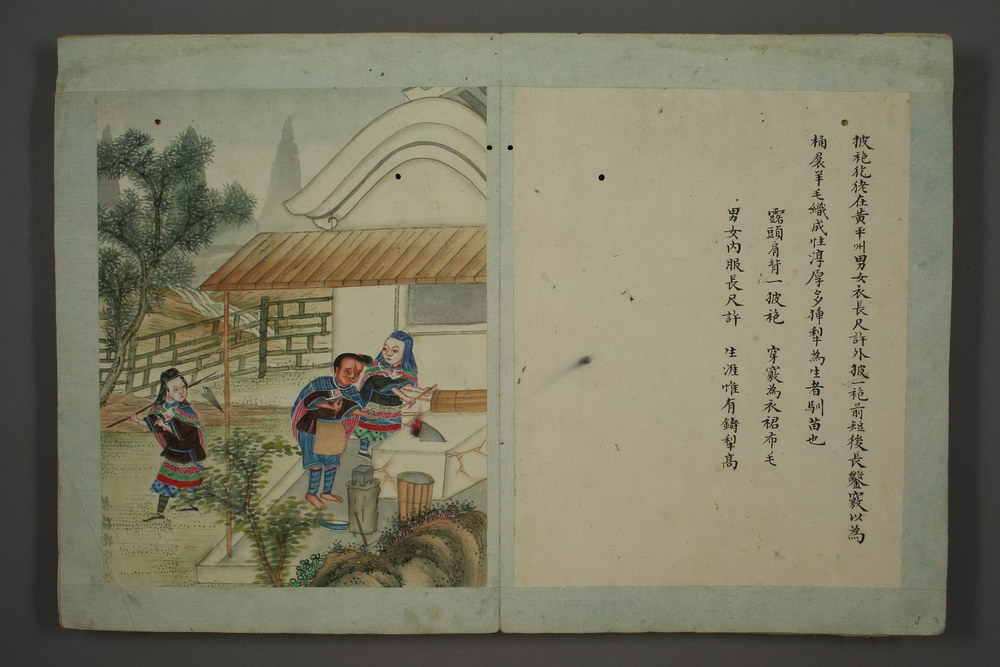 披袍犵狫在黄平州男女衣長尺許外披一袍前短後長鑿竅以為
桶裙羊毛織成性淳厚多揷犁為生者馴苗也
露頭肩背一披袍 穿竅為衣裙布毛
男女內服長尺許 生涯唯有鑄犁高